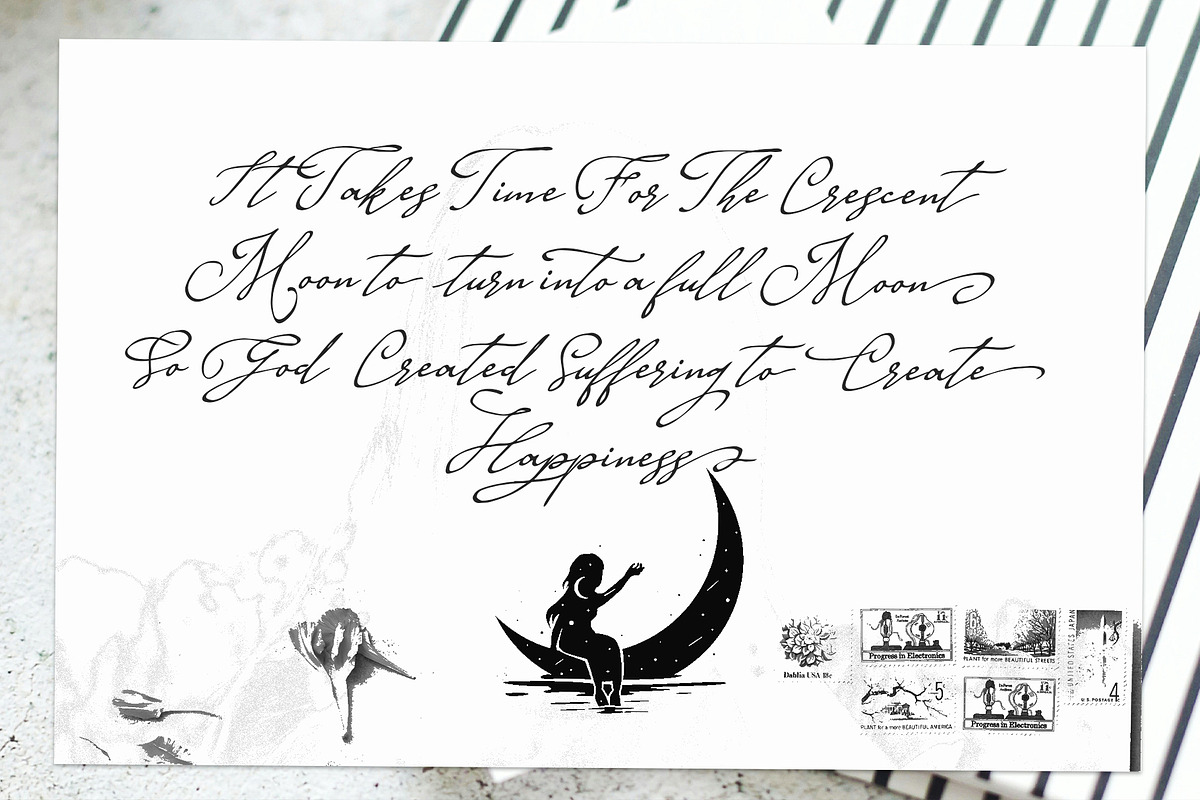 It Takes Time For The Crescent
Moon to turn into a full Moon
So God Created Suffering to Create
Happiness
Dahlia USA 18c
DeForest Audions
11c
Progress in Electronics
PLANT for more BEAUTIFUL STREETS
UNITED STATES JAPAN
4
U.S. POSTAGE
5
PLANT for a more BEAUTIFUL AMERICA
11c
Progress in Electronics